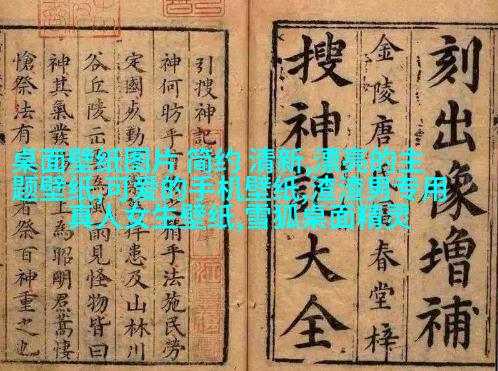 刻出像增補
金陵唐富春堂梓
搜神大全
引搜神記
神何昉乎精乎法施民勞
定國患及山林川
谷丘陵風雨見怪物皆曰
神其氣發上為昭明焄蒿悽
愴祭法有者祭百神重之也
桌面壁纸图片 简约 清新,漂亮的主
题壁纸,可爱的手机壁纸,渣渣男专用
真人女生壁纸,雪狐桌面精灵